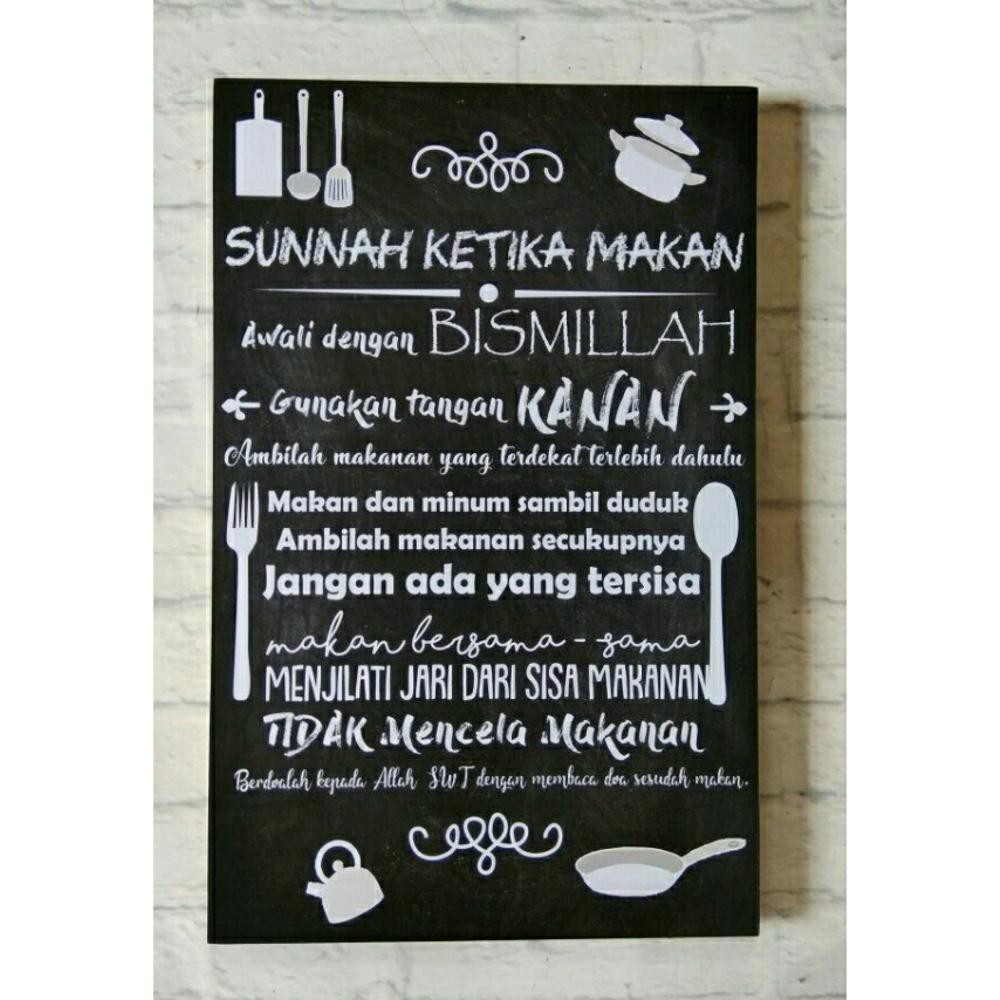 SUNNAH KETIKA MAKAN
Awali dengan BISMILLAH
Gunakan tangan KANAN
Ambilah makanan yang terdekat terlebih dahulu
Makan dan minum sambil duduk
Ambilah makanan secukupnya
Jangan ada yang tersisa
makan bersama - sama
MENJILATI JARI DARI SISA MAKANAN
TIDAK Mencela Makanan
Berdoalah kepada Allah SWT dengan membaca doa sesudah makan.